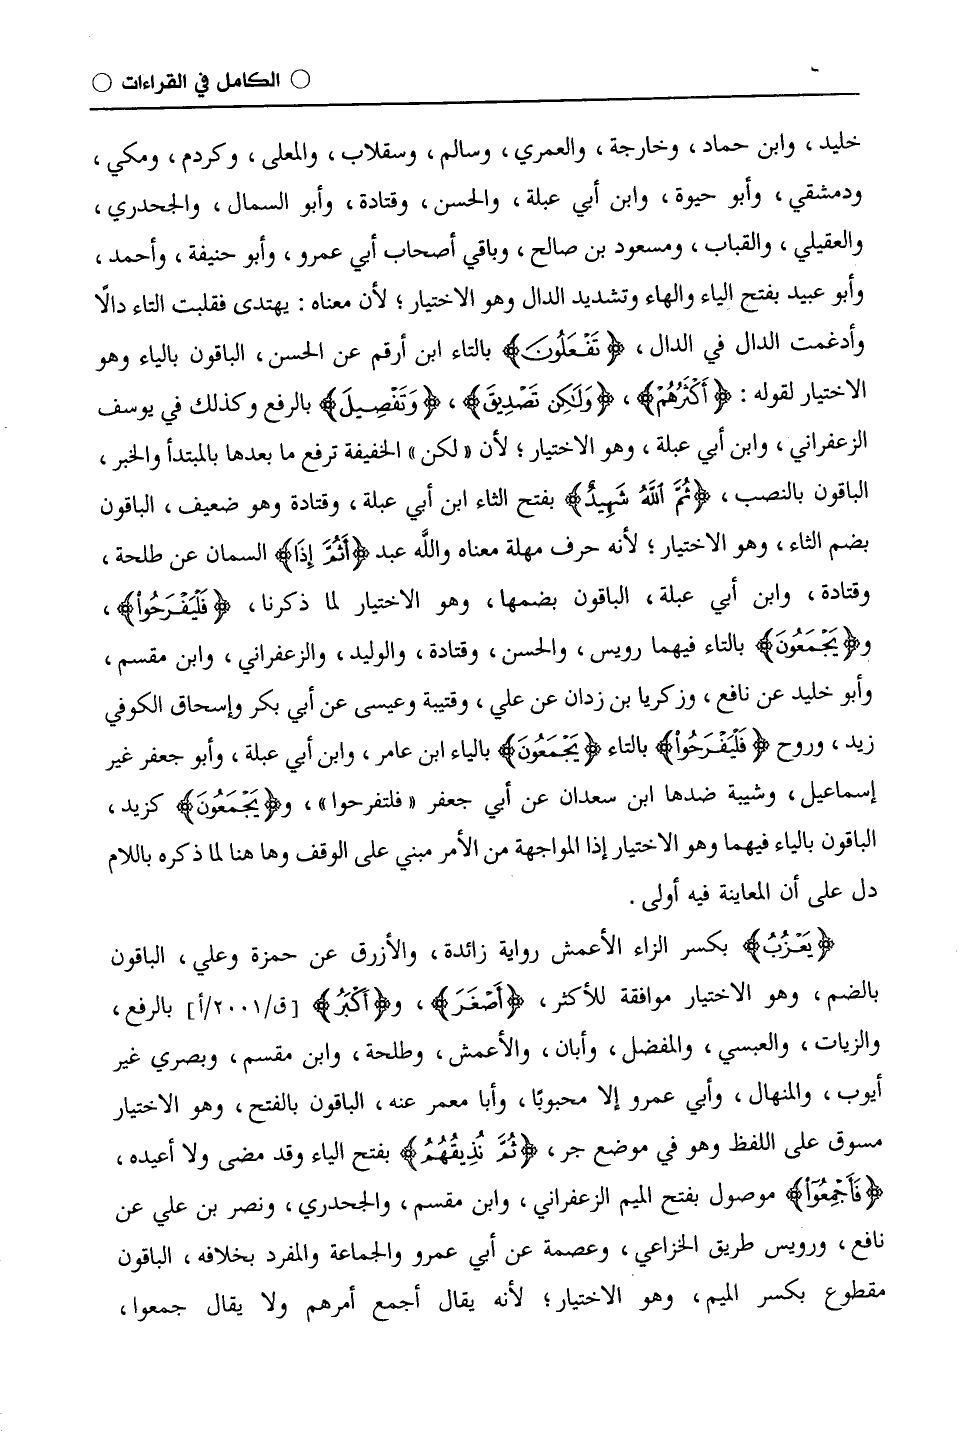 ○ الكامل في القراءات ○
خليد ، وابن حماد ، وخارجة ، والعمري ، وسالم ، وسقلاب ، والمعلى ، وكردم ، ومكي ،
ودمشقي ، وأبو حيوة ، وابن أبي عبلة ، والحسن ، وقتادة ، وأبو السمال ، والجحدري ،
والعقيلي ، والقباب ، ومسعود بن صالح ، وباقي أصحاب أبي عمرو ، وأبو حنيفة ، وأحمد ،
وأبو عبيد بفتح الياء والهاء وتشديد الدال وهو الاختيار ؛ لأن معناه : يهتدى فقلبت التاء دالًا
وأدغمت الدال في الدال ، ﴿تَفْعَلُونَ﴾ بالتاء ابن أرقم عن الحسن ، الباقون بالياء وهو
الاختيار لقوله : ﴿أَكْثَرُهُمْ﴾ ، ﴿وَلَٰكِن تَصْدِيقَ﴾ ، ﴿وَتَفْصِيلَ﴾ بالرفع وكذلك في يوسف
الزعفراني ، وابن أبي عبلة ، وهو الاختيار ؛ لأن « لكن » الخفيفة ترفع ما بعدها بالمبتدأ والخبر ،
الباقون بالنصب ، ﴿ثُمَّ اللَّهُ شَهِيدٌ﴾ بفتح الثاء ابن أبي عبلة ، وقتادة وهو ضعيف ، الباقون
بضم الثاء ، وهو الاختيار ؛ لأنه حرف مهلة معناه واللَّه عبد ﴿أَثُمَّ إِذَا﴾ السمان عن طلحة ،
وقتادة ، وابن أبي عبلة ، الباقون بضمها ، وهو الاختيار لما ذكرنا ، ﴿فَلْيَفْرَحُوا﴾ ،
و﴿يَجْمَعُونَ﴾ بالتاء فيهما رويس ، والحسن ، وقتادة ، والوليد ، والزعفراني ، وابن مقسم ،
وأبو خليد عن نافع ، وزكريا بن زدان عن علي ، وقتيبة وعيسى عن أبي بكر وإسحاق الكوفي
زيد ، وروح ﴿فَلْيَفْرَحُوا﴾ بالتاء ﴿يَجْمَعُونَ﴾ بالياء ابن عامر ، وابن أبي عبلة ، وأبو جعفر غير
إسماعيل ، وشيبة ضدها ابن سعدان عن أبي جعفر « فلتفرحوا » ، و﴿يَجْمَعُونَ﴾ كزيد ،
الباقون بالياء فيهما وهو الاختيار إذا المواجهة من الأمر مبني على الوقف وها هنا لما ذكره باللام
دل على أن المعاينة فيه أولى .
﴿يَعْزُبُ﴾ بكسر الزاء الأعمش رواية زائدة ، والأزرق عن حمزة وعلي ، الباقون
بالضم ، وهو الاختيار موافقة للأكثر ، ﴿أَصْغَرَ﴾ ، و﴿أَكْبَرُ﴾ [ق/٢٠٠١/أ] بالرفع ،
والزيات ، والعبسي ، والمفضل ، وأبان ، والأعمش ، وطلحة ، وابن مقسم ، وبصري غير
أيوب ، والمنهال ، وأبي عمرو إلا محبوبًا ، وأبا معمر عنه ، الباقون بالفتح ، وهو الاختيار
مسوق على اللفظ وهو في موضع جر ، ﴿ثُمَّ نُذِيقُهُمُ﴾ بفتح الياء وقد مضى ولا أعيده ،
﴿فَأَجْمِعُوا﴾ موصول بفتح الميم الزعفراني ، وابن مقسم ، والجحدري ، ونصر بن علي عن
نافع ، ورويس طريق الخزاعي ، وعصمة عن أبي عمرو والجماعة والمفرد بخلافه ، الباقون
مقطوع بكسر الميم ، وهو الاختيار ؛ لأنه يقال أجمع أمرهم ولا يقال جمعوا ،